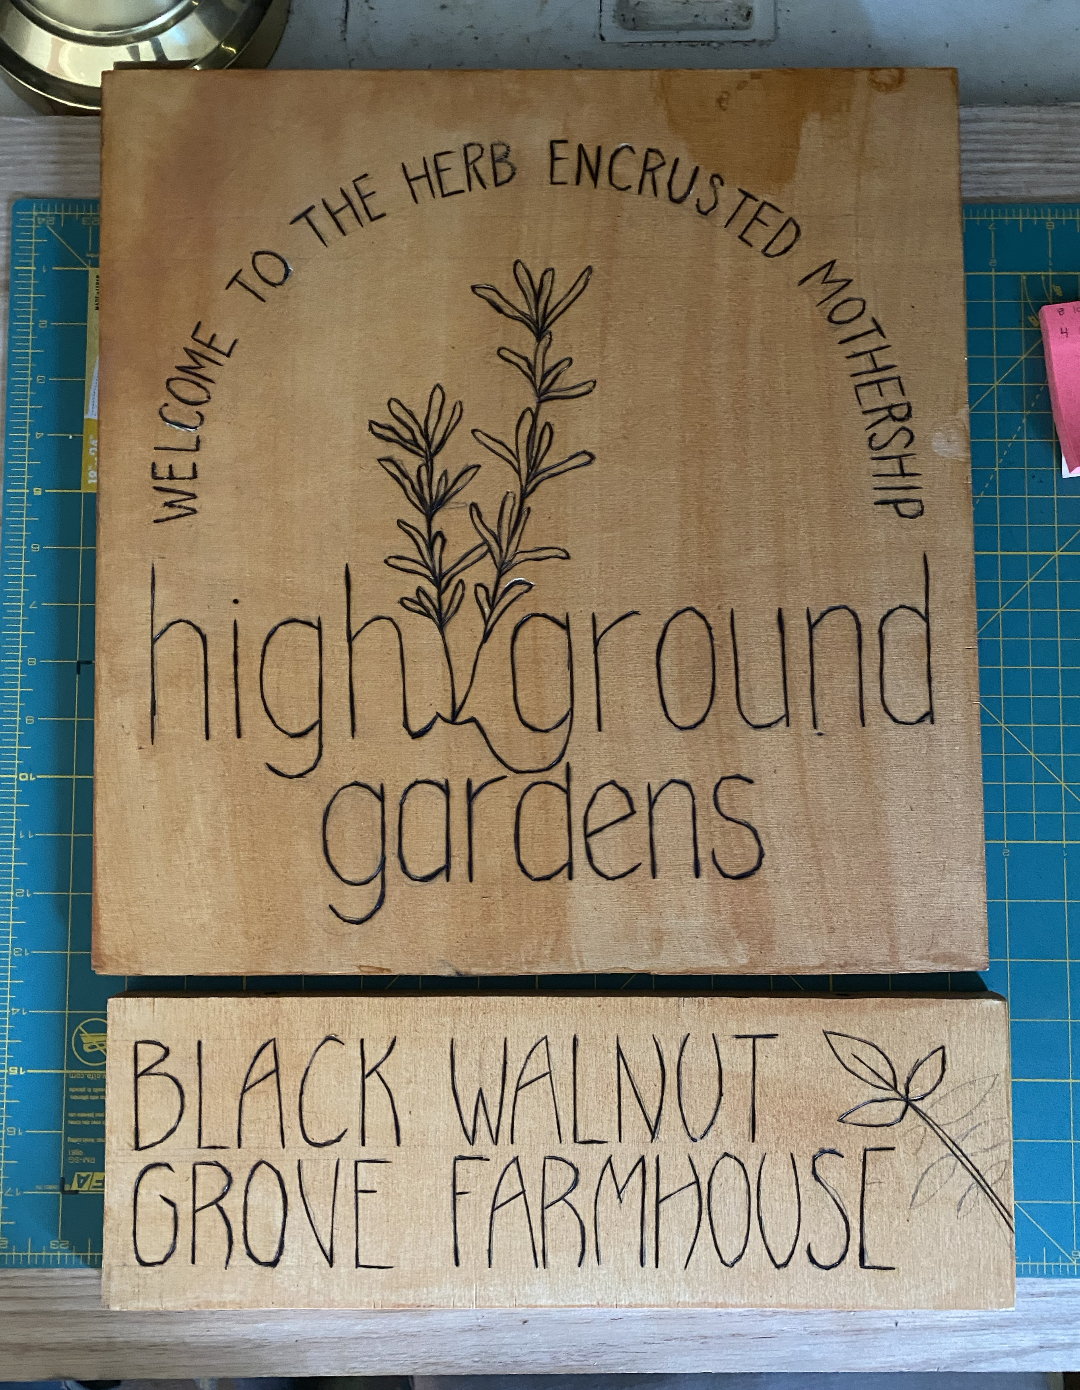 WELCOME TO THE HERB ENCRUSTED MOTHERSHIP
high ground
gardens
BLACK WALNUT
GROVE FARMHOUSE